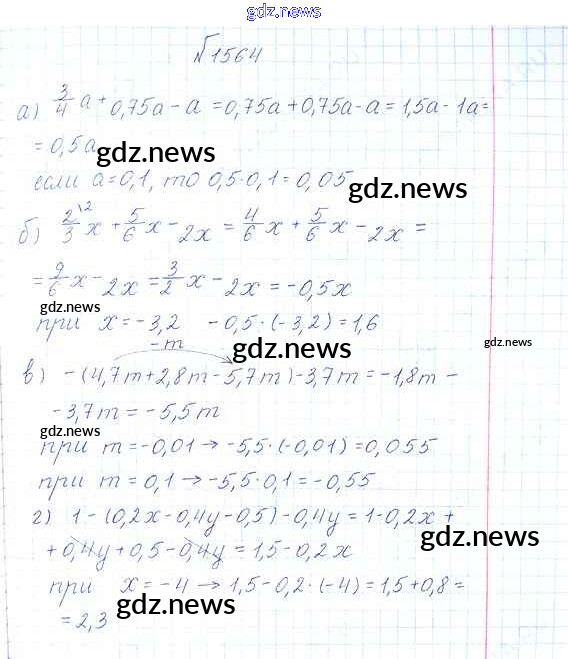 gdz.news
№1564
а) 3/4 a + 0,75a - a = 0,75a + 0,75a - a = 1,5a - 1a =
= 0,5a
gdz.news
если a = 0,1, то 0,5·0,1 = 0,05
gdz.news
б) 2/3\2 x + 5/6 x - 2x = 4/6 x + 5/6 x - 2x =
= 9/6 x - 2x = 3/2 x - 2x = -0,5x
gdz.news
при x = -3,2 -0,5·(-3,2) = 1,6
gdz.news
-m
gdz.news
в) -(4,7m + 2,8m - 5,7m) - 3,7m = -1,8m -
- 3,7m = -5,5m
gdz.news
при m = -0,01 → -5,5·(-0,01) = 0,055
при m = 0,1 → -5,5·0,1 = -0,55
г) 1 - (0,2x - 0,4y - 0,5) - 0,4y = 1 - 0,2x +
gdz.news
+ 0,4y + 0,5 - 0,4y = 1,5 - 0,2x
при x = -4 → 1,5 - 0,2·(-4) = 1,5 + 0,8 =
gdz.news
= 2,3